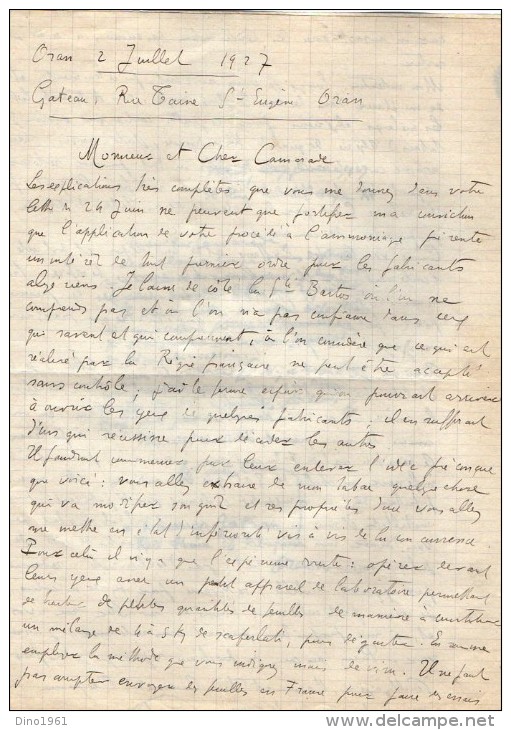 Oran 2 Juillet 1927
Gateau, Rue Taine St Eugène Oran
Monsieur et Cher Camarade
Les explications très complètes que vous me donnez dans votre
lettre du 24 Juin ne peuvent que fortifier ma conviction
que l'application de votre procédé à l'ammoniaque présente
un intérêt de tout premier ordre pour les fabricants
algériens. Je laisse de côté la Sté Bastos où l'on ne
comprends pas et où l'on n'a pas confiance dans ceux
qui savent et qui comprennent, où l'on considère que ce qui est
par la Régie française ne peut être accepté
sans contrôle; j'ai le ferme espoir qu'on pourrait arriver
à ouvrir les yeux à quelques fabricants; il en suffirait
d'un qui réussisse pour décider les autres
Il faudrait commencer par leur enlever l'idée préconçue
que voici: vous allez extraire de mon tabac quelque chose
qui va modifier son goût et ses propriétés donc vous allez
me mettre en état d'infériorité vis à vis de la concurrence.
Pour cela il n'y a que l'expérience : opérer devant
leurs yeux avec un petit appareil de laboratoire permettant
de traiter de petites quantités de feuilles de manière à constituer
un mélange de 4 à 5 kg de scaferlati, pour déguster. En somme
employer la méthode que vous indiquez mais . Il ne faut
pas compter envoyer des feuilles en France pour faire des essais
Dino1961
delcampe.net